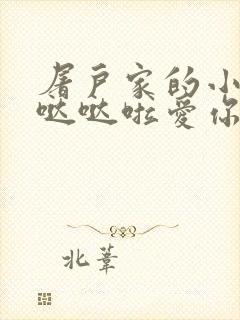 屠户家的小
哒哒啦爱你
北葦